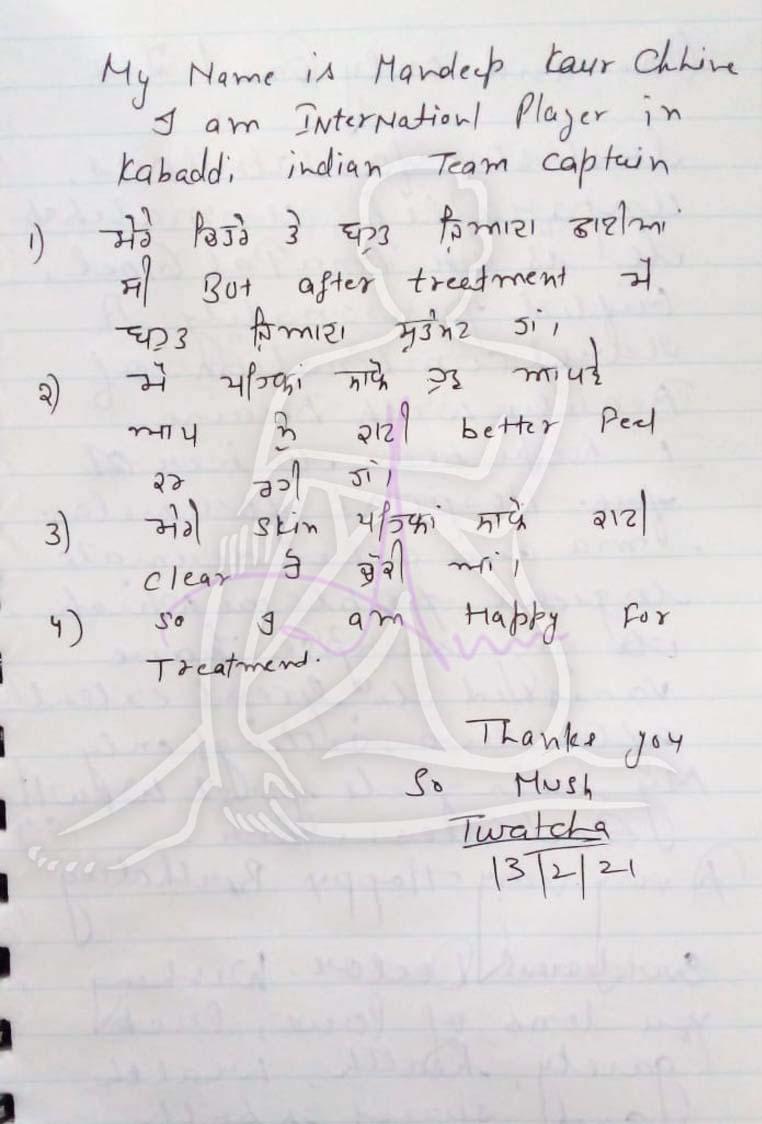 My Name is Mandeep Kaur Chhine
I am INterNationl Player in
Kabaddi indian Team captain
1) ਮੇਰੇ ਚਿਹਰੇ ਤੇ ਬਹੁਤ ਜ਼ਿਆਦਾ ਛਾਈਆਂ
ਸੀ But after treetment ਮੈਂ
ਬਹੁਤ ਜ਼ਿਆਦਾ ਸੰਤੁਸ਼ਟ ਹਾਂ।
2) ਮੈਂ ਪਹਿਲਾਂ ਨਾਲੋਂ ਹੁਣ ਆਪਣੇ
ਆਪ ਨੂੰ ਕਾਫੀ better Feel
ਕਰ ਰਹੀ ਹਾਂ।
3) ਮੇਰੀ Skin ਪਹਿਲਾਂ ਨਾਲੋਂ ਕਾਫੀ
Clear ਹੋ ਚੁੱਕੀ ਆ।
4) So I am Happy For
Treatmend.
Thanks you
So Mush
Twatcha
13/2/21